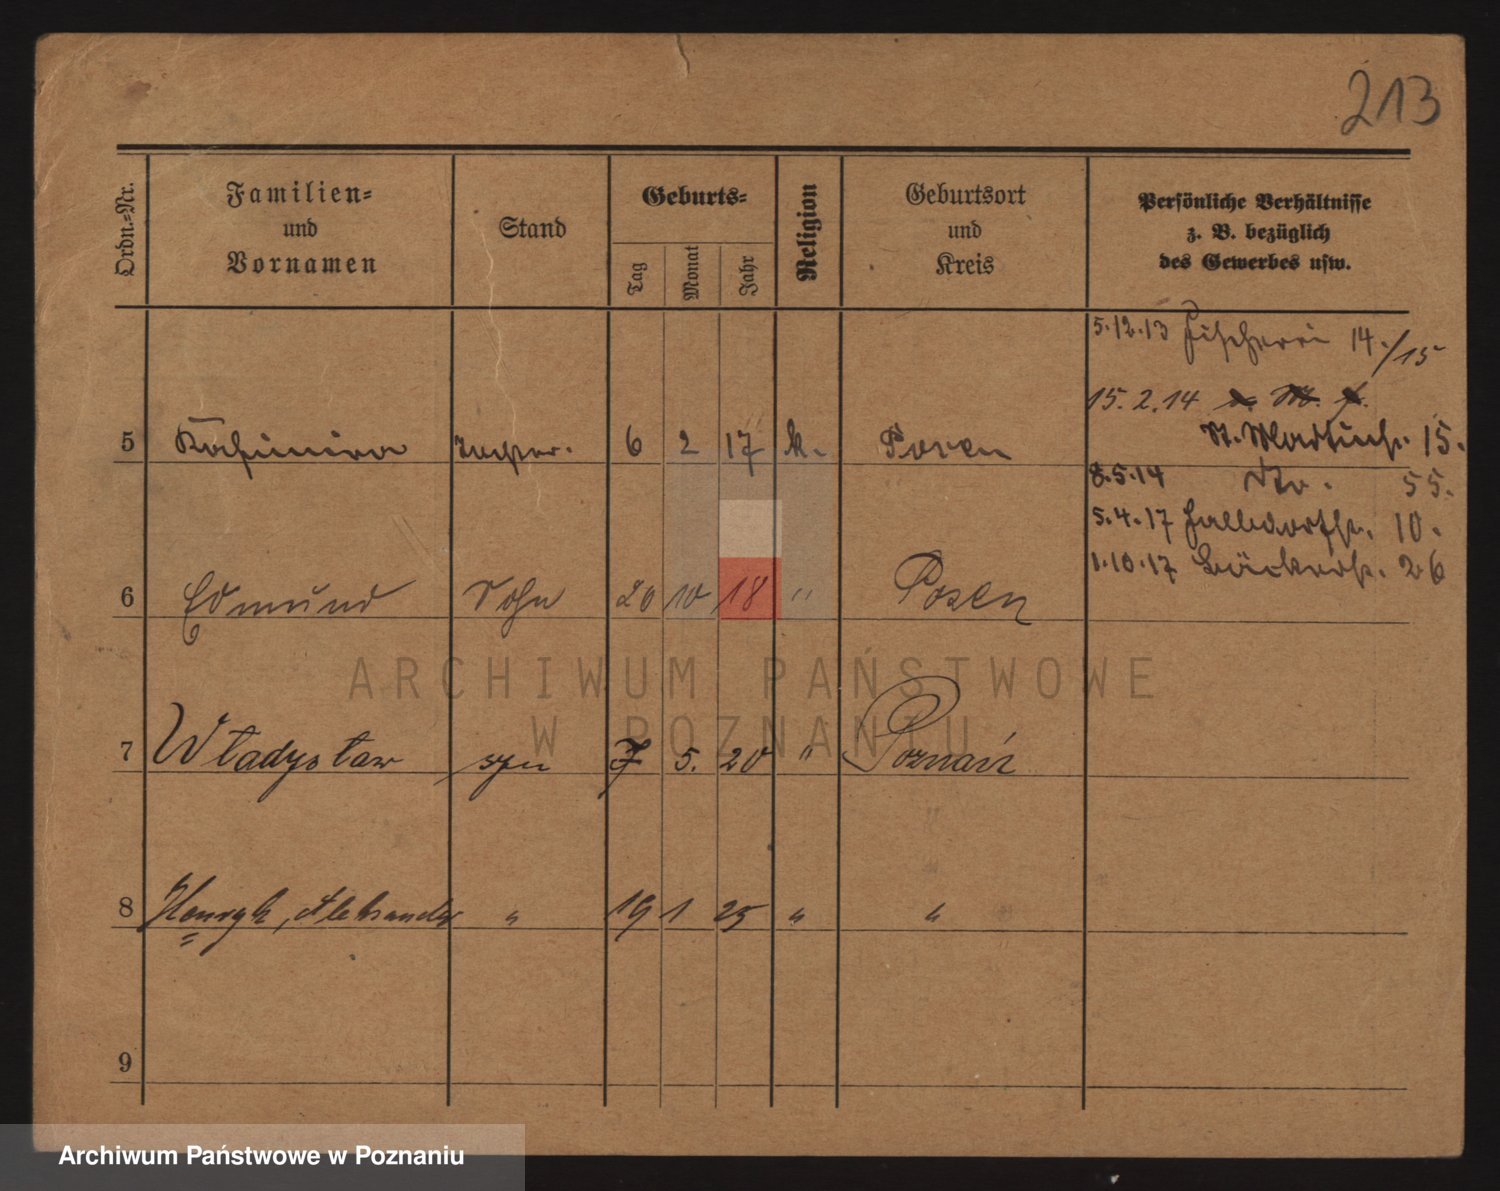 213
Ordn.-Nr.
Familien-
und
Vornamen
Stand
Geburts-
Tag
Monat
Jahr
Religion
Geburtsort
und
Kreis
Persönliche Verhältnisse
z. B. bezüglich
des Gewerbes usw.
5.12.13 Fischerei 14./15
15.2.14
5 Kasimira Tochter. 6 2 17 k. Posen St. Martinstr. 15.
8.5.14 Sto. 55.
5.4.17 Halbdorfstr. 10.
1.10.17 Bäckerstr. 26
6 Edmund Sohn 20 10 18 " Posen
ARCHIWUM PAŃSTWOWE
W POZNANIU
7 Władysław syn 7 5. 20 " Poznań
8 Henryk, Aleksander " 19 1 25 " "
9
Archiwum Państwowe w Poznaniu